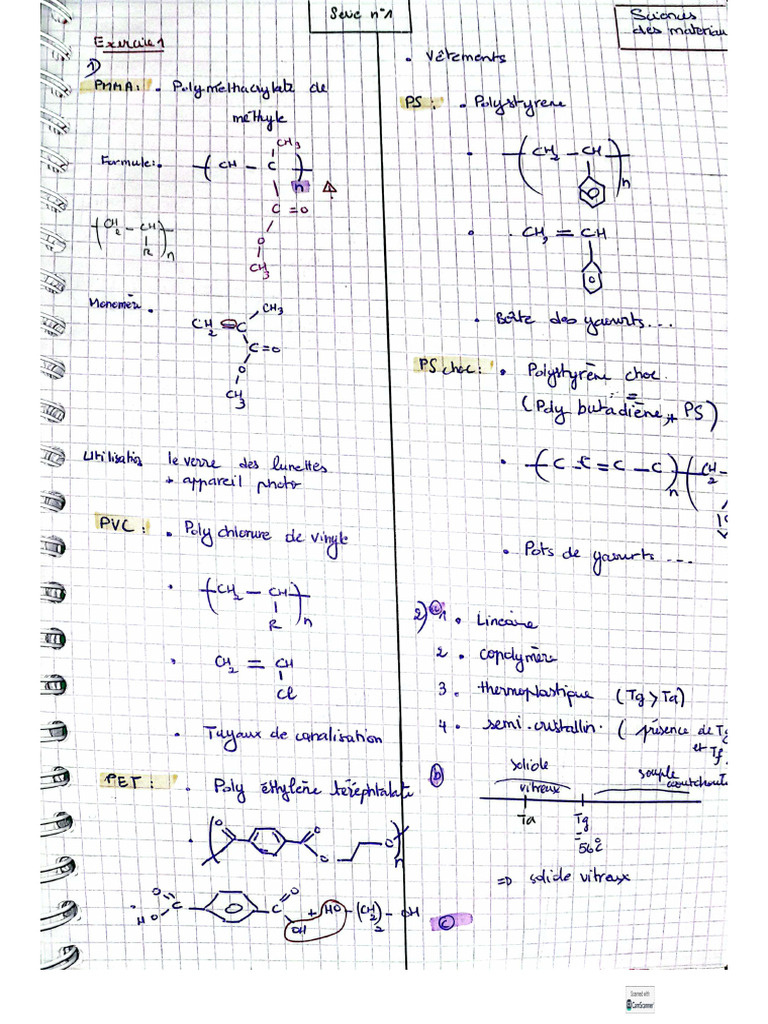 Série n°1
Sciences
des materiau
Exercice 1
1)
PMMA: . Polyméthacrylate de
méthyle
Formule:. -(CH - C)-n
CH3
C=O
O
CH3
-(CH2 - CH)-n
R
Monomère .
CH2 = C
CH3
C=O
O
CH3
Utilisation le verre des lunettes
+ appareil photo
PVC: . Poly chlorure de vinyle
. -(CH2 - CH)-n
R
. CH2 = CH
Cl
. Tuyaux de canalisation
PET: . Poly éthylène téréphtalate
O
O
O
O
n
. O
HO
C
O
C
OH
+ HO - (CH2)2 - OH
. Vêtements
PS: . Polystyrene
. -(CH2 - CH)-n
. CH2 = CH
. Boîte des yaourts...
PS choc: . Polystyrène choc
(Poly butadiène + PS)
. -(C - C = C - C)-n (CH2 -
. Pots de yaourts ...
2) a) 1 . Lineaire
2 . copolymère
3 . thermoplastique (Tg > Ta)
4 . semi-cristallin. (présence de Tg
et Tf
b
solide
vitreux
souple
caoutchoute
Ta
Tg
56°C
=> solide vitreux
c
Scanned with
CamScanner